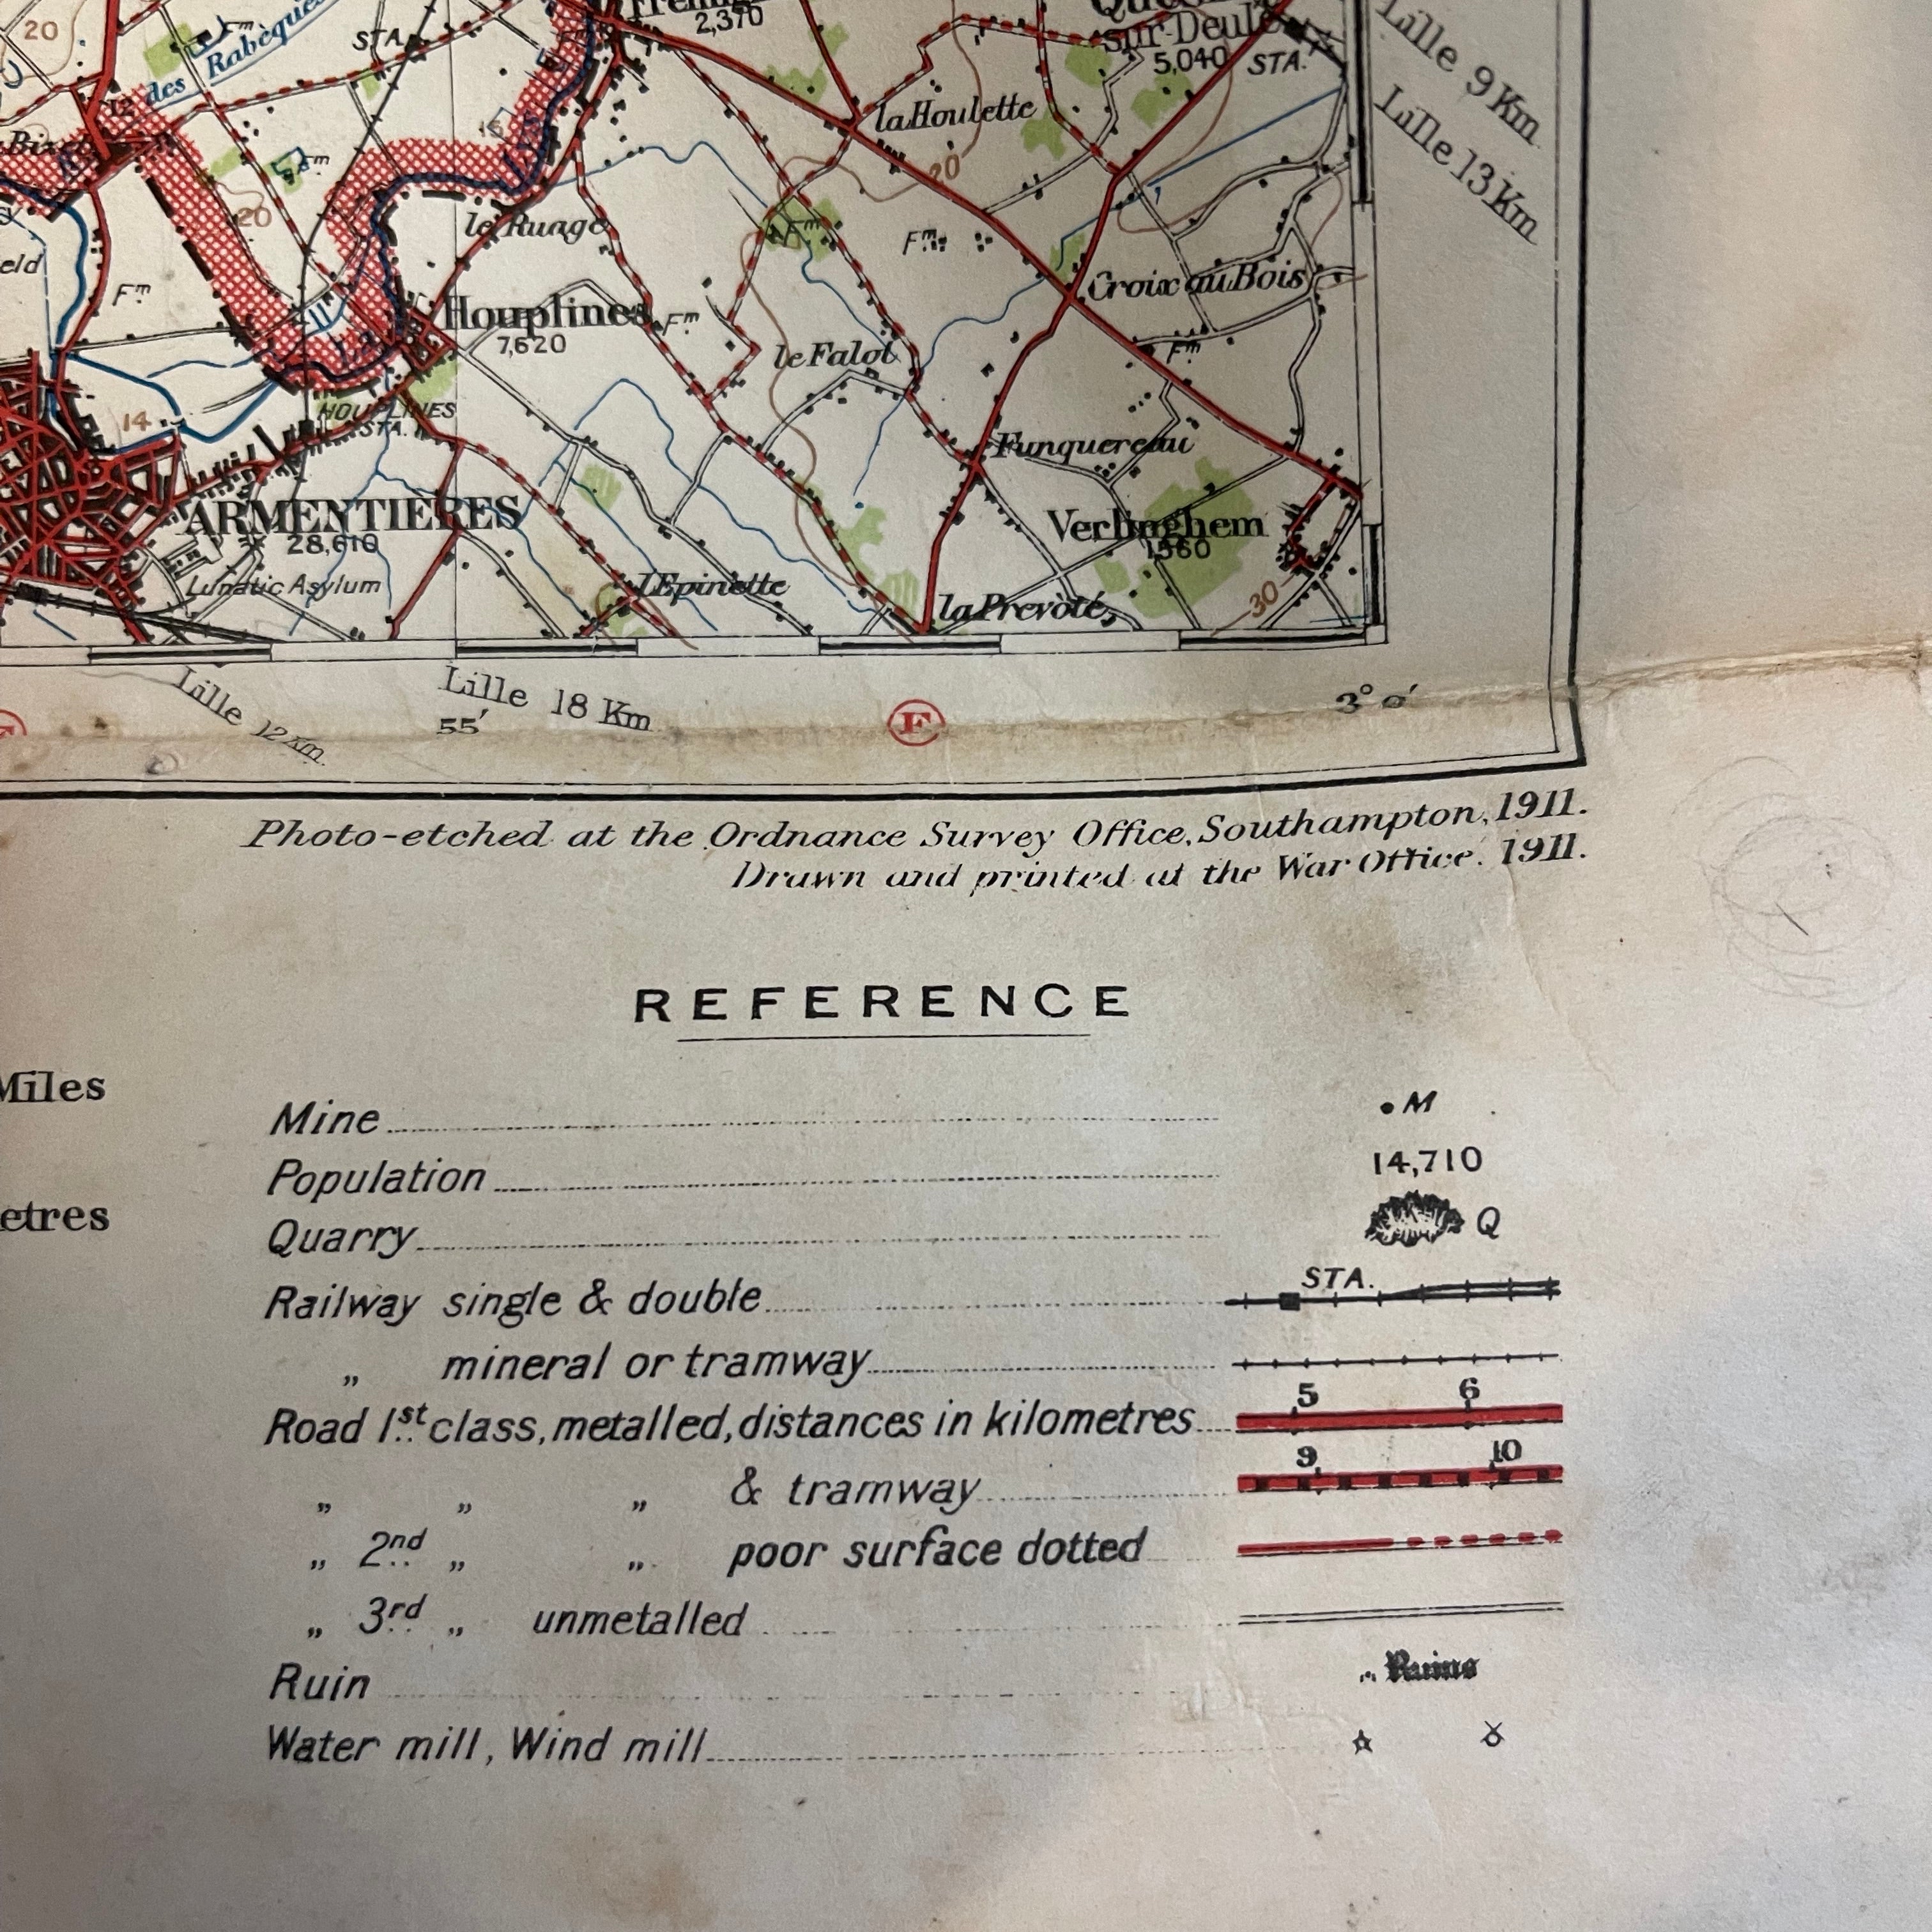 20
Fm
STA.
2,370
sur-Deule
5,040 STA.
Lille 9 Km
Lille 13 Km
des Rabèques
12
la Houlette
20
Fm
20
le Ruage
Fm
Fms
Fm
Croix au Bois
Houplines
7,620
Fm
le Falot
Fm
HOUPLINES
STA.
14
Funquereau
ARMENTIÈRES
28,610
Verlinghem
1560
Lunatic Asylum
l'Epinette
la Prévôté
30
Lille 12 Km.
Lille 18 Km
55′
F
3° 0′
Photo-etched at the Ordnance Survey Office, Southampton, 1911.
Drawn and printed at the War Office. 1911.
REFERENCE
Miles
etres
Mine • M
Population 14,710
Quarry Q
Railway single & double STA.
„ mineral or tramway
Road 1st class, metalled, distances in kilometres 5 6
„ „ „ & tramway 9 10
„ 2nd „ „ poor surface dotted
„ 3rd „ unmetalled
Ruin Ruins
Water mill, Wind mill